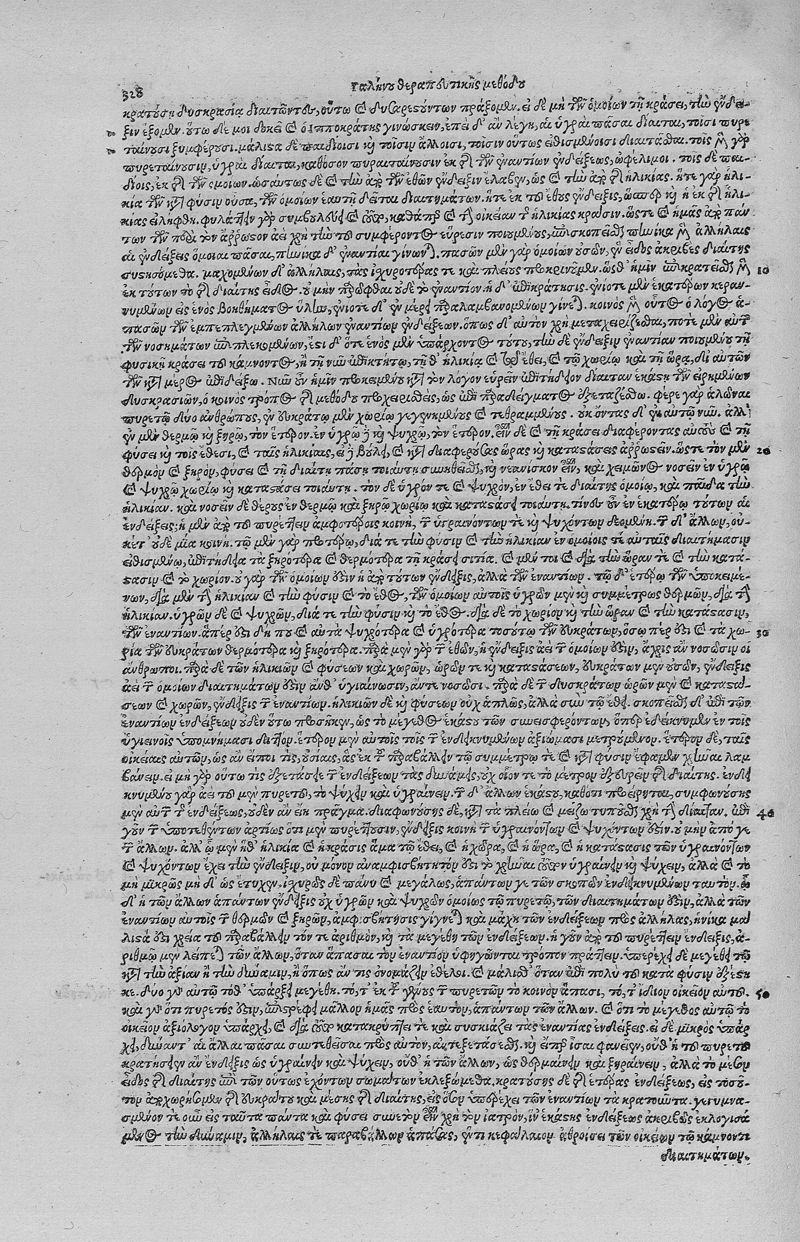 328 Γαλήνου θεραπευτικῆς μεθόδου
κρατούσῃ δυσκρασίᾳ διαιτῶντος, οὕτω καὶ δυσαρεστούντων πράξομεν. εἰ δὲ μὴ τῶν ὁμοίων τῇ κράσει, τὴν ἔνδει-
ξιν ἕξομεν. οὕτω δέ μοι δοκεῖ καὶ ὁ ἱπποκράτης γινώσκειν, ἐπειδ' ἂν λέγῃ, αἱ ὑγραὶ πᾶσαι δίαιται, τοῖσι πυρε
ταίνουσι ξυμφέρουσι. μάλιστα δὲ παιδίοισι καὶ τοῖσιν ἄλλοισι, τοῖσιν οὕτως εἰθισμένοισι διαιτᾶσθαι. τοῖς μὲν γὰρ
πυρεταίνουσιν, ὑγραὶ δίαιται, καθόσον πυρεταίνουσιν ἐκ τῆς τῶν ἐναντίων ἐνδείξεως, ὠφέλιμοι. τοῖς δὲ παι-
δίοις, ἐκ τῆς τῶν ὁμοίων. ὡσαύτως δὲ καὶ τὴν ἀπὸ τῶν ἐθῶν ἔνδειξιν ἔλαβεν, ὡς καὶ τὴν ἀπὸ τῆς ἡλικίας. ἥτε γὰρ ἡλι-
κία τῶν κατὰ φύσιν οὖσα, τῶν ὁμοίων ἑαυτῇ δεῖται διαιτημάτων. ἥτε ἐκ τοῦ ἔθους ἔνδειξις, ὥσπερ καὶ ἡ ἐκ τῆς ἡλι-
κίας ἐλήφθη. φυλάττειν γὰρ συμβουλεύει καὶ τοῦτο, καθάπερ καὶ τὴν οἰκείαν τῆς ἡλικίας κρᾶσιν. ὥστε καὶ ἡμᾶς ἀπὸ πάν
των τῶν περὶ τὸν ἄρρωστον ἀεὶ χρὴ τὴν τοῦ συμφέροντος εὕρεσιν ποιουμένους, ἐπισκοπεῖσθαι πηνίκα μὲν ἀλλήλαις
αἱ ἐνδείξεις ὅμοιαι πᾶσαι, πηνίκα δ' ἐναντίαι γίνονται. πασῶν μὲν γὰρ ὁμοίων οὐσῶν, ἓν εἶδος ἀκριβὲς διαίτης
συστησόμεθα. μαχομένων δ' ἀλλήλαις, τὰς ἰσχυροτέρας τε καὶ πλείους προκρινοῦμεν. ὥσθ' ἡμῖν ἐπικρατεῖσθαι μὲν 10
ἐκ τούτων τὸ τῆς διαίτης εἶδος. οὐ μὴν παρῶφθαι οὐδὲ τὸ ἐναντίον. ἡ δ' ἐπικράτησις, ἐνίοτε μὲν ἑκατέρων κεραν-
νυμένων εἰς ἑνὸς βοηθήματος ὕλην, ἐνίοτε δ' ἐν μέρει παραλαμβανομένων γίνεται. κοινὸς μὲν οὖν τοι ὁ λόγος ἁ-
πασῶν τῶν ἐμπεπλεγμένων ἀλλήλων ἐναντίων ἐνδείξεων. ὅπως δ' αὐτὸν χρὴ μεταχειρίζεσθαι, ποτὲ μὲν αὐτῶν
τῶν νοσημάτων ἐπιπλεκομένων, ἔστι δ' ὅτε ἑνὸς μὲν ὑπάρχοντος τούτου, τὴν δὲ ἔνδειξιν ἐναντίαν ποιουμένου τῇ
φυσικῇ κράσει τοῦ κάμνοντος, ἢ τῇ νῦν ἐπικτήτῳ, τῇ θ' ἡλικίᾳ καὶ τῷ ἔθει, καὶ τῷ χωρίῳ καὶ τῇ ὥρᾳ, δι' αὐτῶν
τῶν κατὰ μέρος ἐπιδείξω. Νῦν οὖν ἡμῖν προκειμένου κατὰ τὸν λόγον εὑρεῖν ἐπιτήδειον δίαιταν ἑκάστῃ τῶν εἰρημένων
δυσκρασιῶν, ὁ κοινὸς τρόπος τῆς μεθόδου προχειρισθείς, ὡς ἐπὶ παραδείγματος ἐξεταζέσθω. φέρε γὰρ ἁλῶναι
πυρετῷ δύο ἀνθρώπους, ἐν εὐκράτῳ μὲν χωρίῳ γεγενημένους καὶ τεθραμμένους. οἰκοῦντας δ' ἐν αὐτῷ νῦν. ἀλλ'
ἐν μὲν θερμῷ καὶ ξηρῷ, τὸν ἕτερον. ἐν ὑγρῷ δὲ καὶ ψυχρῷ, τὸν ἕτερον. εἶναι δὲ καὶ τῇ κράσει διαφέροντας αὐτοὺς καὶ τῇ
φύσει καὶ τοῖς ἔθεσι, καὶ ταῖς ἡλικίαις, εἰ δὲ βούλει, καὶ κατὰ διαφερούσας ὥρας καὶ καταστάσεις ἀρρωστεῖν. ὥστε τὸν μὲν 20
θερμὸν καὶ ξηρὸν, φύσει καὶ τῇ διαίτῃ πάσῃ τοιαύτῃ συνηθείᾳ, καὶ νεανίσκον εἶναι, καὶ χειμῶνος νοσεῖν ἐν ὑγρῷ
καὶ ψυχρῷ χωρίῳ καὶ καταστάσει τοιαύτῃ. τὸν δὲ ὑγρόν τε καὶ ψυχρὸν, ἐν ἔθει τε διαίτης ὁμοίῳ, καὶ παῖδα τὴν
ἡλικίαν. καὶ νοσεῖν δὲ θέρους ἐν θερμῷ καὶ ξηρῷ χωρίῳ καὶ καταστάσει τοιαύτῃ. τίνες οὖν ἐν ἑκατέρῳ τούτων αἱ
ἐνδείξεις; ἡ μὲν ἀπὸ τοῦ πυρέττειν ἀμφοτέροις κοινὴ, τῶν ὑγραινόντων τε καὶ ψυχόντων δεομένη. τῶν δ' ἄλλων, οὐ-
κέτ' οὐδὲ μία κοινή. τῷ μὲν γὰρ προτέρῳ, διά τε τὴν φύσιν καὶ τὴν ἡλικίαν ἐν ὁμοίοις τε αὐταῖς διαιτήμασιν
εἰθισμένῳ, ἐπιτήδεια τὰ ξηρότερα καὶ θερμότερα τῇ κράσει σιτία. καὶ μέν τοι καὶ διὰ τὴν ὥραν τε καὶ τὴν κατά-
στασιν καὶ τὸ χωρίον. οὐ γὰρ τῶν ὁμοίων ἐστὶν ἡ ἀπὸ τούτων ἔνδειξις, ἀλλὰ τῶν ἐναντίων. τῷ δ' ἑτέρῳ τῶν ὑποκειμέ-
νων, διὰ μὲν τὴν ἡλικίαν καὶ τὴν φύσιν καὶ τὸ ἔθος, τῶν ὁμοίων αὐτοῖς ὑγρῶν μὲν καὶ συμμέτρως θερμῶν, διὰ τὴν
ἡλικίαν. ὑγρῶν δὲ καὶ ψυχρῶν, διά τε τὴν φύσιν καὶ τὸ ἔθος. διὰ δὲ τὸ χωρίον καὶ τὴν ὥραν καὶ τὴν κατάστασιν,
τῶν ἐναντίων. ἅπερ ἐστὶ δή που καὶ αὐτὰ ψυχρότερα καὶ ὑγρότερα τοσούτῳ τῶν εὐκράτων, ὅσῳ πέρ ἐστι καὶ τὰ χω- 30
ρία τῶν εὐκράτων θερμότερα καὶ ξηρότερα. παρὰ μὲν γὰρ τῶν ἐθῶν, ἡ ἔνδειξις ἀεὶ τῶν ὁμοίων ἐστὶν, ἄχρις ἂν νοσῶσιν οἱ
ἄνθρωποι. παρὰ δὲ τῶν ἡλικιῶν καὶ φύσεων καὶ χωρῶν, ὡρῶν τε καὶ καταστάσεων, εὐκράτων μὲν οὐσῶν, ἔνδειξις
ἀεὶ τῶν ὁμοίων διαιτημάτων ἐστὶν ἄνθ' ὑγιαίνωσιν, ἄντε νοσῶσι. παρὰ δὲ τῶν δυσκράτων ὡρῶν μὲν καὶ καταστά-
σεων καὶ χωρῶν, ἔνδειξις τῶν ἐναντίων. ἡλικιῶν δὲ καὶ φύσεων οὐχ ἁπλῶς, ἀλλὰ σὺν τῷ ἔθει. σκοπεῖσθαι δ' ἐπὶ τῶν
ἐναντίων ἐνδείξεων οὐδὲν οὕτω προσήκεν, ὡς τὸ μέγεθος ἑκάστου τῶν συνεισφερόντων, ὅπερ ἐδείκνυμεν ἐν τοῖς
ὑγιεινοῖς ὑπομνήμασι διττόν. ἕτερον μὲν αὐτοῖς τοῖς τῶν ἐνδεικνυμένων ἀξιώμασι μετρούμενον. ἕτερον δὲ, ταῖς
οἰκείαις αὐτῶν, ὡς ἂν εἴποι τις, οὐσίαις, ἃς ἐκ τοῦ παραβάλλειν τῷ συμμέτρῳ τε καὶ κατὰ φύσιν ἔφαμεν χρῆναι λαμ
βάνειν. εἰ μὴ γὰρ οὕτω τις ἐξετάσειε τῶν ἐνδείξεων τὰς δυνάμεις, οὐχ οἷόν τε τὸ μέτρον ἐξευρεῖν τῆς διαίτης. ἐνδεικ
κνυμένου γὰρ ἀεὶ τοῦ μὲν πυρετοῦ, τὸ ψύχειν καὶ ὑγραίνειν. τῶν δ' ἄλλων ἑκάστου, καθότι προείρηται, συμφωνούσης
μὲν αὐτῷ τῆς ἐνδείξεως, οὐδὲν ἂν εἴη πρᾶγμα. διαφωνούσης δὲ, κατὰ τὰ πλείω καὶ μείζω τυποῦσθαι χρὴ τὴν δίαιταν. ἐπὶ 40
γοῦν τῶν ὑποτεθέντων ἀρτίως ὅτι μὲν πυρέττουσιν, ἔνδειξις κοινὴ τῶν ὑγραινόντων καὶ ψυχόντων ἐστίν. οὐ μὴν ἀπό γε
τῶν ἄλλων. ἀλλ' ᾧ μὲν ἥθ' ἡλικία καὶ ἡ κρᾶσις ἅμα τῷ ἔθει, καὶ ἡ χώρα, καὶ ἡ ὥρα, καὶ ἡ κατάστασις τῶν ὑγραινόντων
καὶ ψυχόντων ἔχει τὴν ἔνδειξιν, οὐ μόνον ἀναμφισβήτητόν ἐστι τὸ χρῆναι τοῦτον ὑγραίνειν καὶ ψύχειν, ἀλλὰ καὶ τὸ
μὴ μικρῶς μηδ' ὡς ἔτυχεν. ἰσχυρῶς δὲ πάνυ καὶ μεγάλως, ἁπάντων γε τῶν σκοπῶν ἐνδεικνυμένων ταυτόν. ᾧ
δ' ἡ τῶν ἄλλων ἁπάντων ἔνδειξις οὐχ ὑγρῶν καὶ ψυχρῶν ὁμοίως τῷ πυρετῷ, τῶν διαιτημάτων ἐστὶν, ἀλλὰ τῶν
ἐναντίων αὐτοῖς τῶν θερμῶν καὶ ξηρῶν, ἀμφισβήτησις γίγνεται καὶ μάχη τῶν ἐνδείξεων πρὸς ἀλλήλας, ἡνίκα μά
λιστά ἐστι χρεία τοῦ παραβάλλειν τόν τε ἀριθμὸν, καὶ τὰ μεγέθη τῶν ἐνδείξεων. ἡ γοῦν ἀπὸ τοῦ πυρέττειν ἔνδειξις, ἀ-
ριθμῷ μὲν λείπεται τῶν ἄλλων, ὅταν ἅπασαι τὸν ἐναντίον ὑφηγῶνται τρόπον πράττειν. ὑπερέχει δὲ μεγέθει τῷ
κατὰ τὴν ἀξίαν ἢ τὴν δύναμιν, ἢ ὅπως ἄν τις ὀνομάζειν ἐθέλοι. καὶ μάλισθ' ὅταν ἐπὶ πολὺ τοῦ κατὰ φύσιν ἐξεστή
κε. δύο γὰρ αὐτῷ τόθ' ὑπάρχει μεγέθη. τό, τ' ἐκ τοῦ γένους τῶν πυρετῶν τὸ κοινὸν ἅπασι, τό, τ' ἴδιον οἰκεῖον αὐτοῦ. 50
καὶ γὰρ ὅτι πυρετός ἐστιν, ἐπιστρέφει μᾶλλον ἡμᾶς πρὸς ἑαυτὸν, ἁπάντων τῶν ἄλλων. καὶ ὅτι τὸ μέγεθος αὐτῷ τὸ
οἰκεῖον ἀξιόλογον ὑπάρχει, καὶ διὰ τοῦτο κατακρύπτει τε καὶ συσκιάζει τὰς ἐναντίας ἐνδείξεις. εἰ δὲ μικρὸς ὑπάρ
χει, δύναντ' αἱ ἄλλαι πᾶσαι συντεθεῖσαι πρὸς αὐτὸν, ἀντεξετάζεσθαι. καὶ εἴπερ ἴσαι φανεῖεν, οὔθ' ἡ τοῦ πυρετοῦ
κρατήσειεν ἂν ἔνδειξις ὡς ὑγραίνειν καὶ ψύχειν, οὔθ' ἡ τῶν ἄλλων, ὡς θερμαίνειν καὶ ξηραίνειν, ἀλλὰ τὸ μέσον
εἶδος τῆς διαίτης ἐπὶ τῶν οὕτως ἐχόντων σωμάτων ἐκλεξώμεθα. κρατούσης δὲ τῆς ἑτέρας ἐνδείξεως, εἰς τοσοῦ-
τον ἀποχωρήσομεν τῆς εὐκράτου καὶ μέσης τῆς διαίτης, εἰς ὅσον ὑπερέχει τῶν ἐναντίων τὰ κρατοῦντα. γεγυμνα-
σμένον τε οὖν εἰς ταῦτα πάντα καὶ φύσει συνετὸν εἶναι χρὴ τὸν ἰατρὸν, ἵν' ἑκάστης ἐνδείξεως ἀκριβῶς ἐκλογισά
μενος τὴν δύναμιν, ἀλλήλαις τε παραβάλλων ἁπάσας, ἔν τι κεφάλαιον ἀθροίσει τῶν οἰκείων τῷ κάμνοντι
διαιτημάτων.